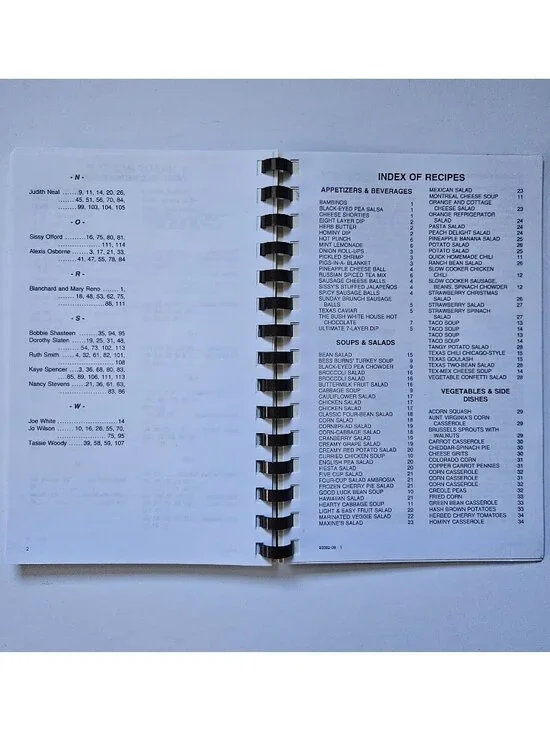 - N -
Judith Neal .......9, 11, 14, 20, 26,
45, 51, 56, 70, 84,
99, 103, 104, 105
- O -
Sissy Offord ........16, 75, 80, 81,
111, 114
Alexis Osborne ......3, 17, 21, 33,
41, 47, 55, 78, 84
- R -
Blanchard and Mary Reno ....... 1,
18, 48, 53, 62, 75,
88, 111
- S -
Bobbie Shasteen .......35, 94, 95
Dorothy Slaten .......19, 25, 31, 48,
54, 73, 102, 113
Ruth Smith .... 4, 32, 61, 82, 101,
108
Kaye Spencer ....3, 36, 68, 80, 83,
85, 89, 106, 111, 113
Nancy Stevens ......21, 36, 61, 63,
83, 86
- W -
Joe White ............................. 14
Jo Wilson .... 10, 16, 26, 55, 70,
75, 95
Tassie Woody .....39, 58, 59, 107
2
INDEX OF RECIPES
APPETIZERS & BEVERAGES
BAMBINOS 1
BLACK-EYED PEA SALSA 1
CHEESE SHORTIES 1
EIGHT LAYER DIP 2
HERB BUTTER 2
HOMINY DIP 2
HOT PUNCH 6
MINT LEMONADE 6
ONION ROLL-UPS 3
PICKLED SHRIMP 3
PIGS-IN-A- BLANKET 3
PINEAPPLE CHEESE BALL 4
RUSSIAN SPICED TEA MIX 6
SAUSAGE CHEESE BALLS 4
SISSY'S STUFFED JALAPEÑOS 4
SPICY SAUSAGE BALLS 4
SUNDAY BRUNCH SAUSAGE
BALLS 5
TEXAS CAVIAR 5
THE BUSH WHITE HOUSE HOT
CHOCOLATE 7
ULTIMATE 7-LAYER DIP 5
SOUPS & SALADS
BEAN SALAD 15
BESS BURNS' TURKEY SOUP 9
BLACK-EYED PEA CHOWDER 9
BROCCOLI SALAD 16
BROCCOLI SALAD 16
BUTTERMILK FRUIT SALAD 16
CABBAGE SOUP 9
CAULIFLOWER SALAD 17
CHICKEN SALAD 17
CHICKEN SALAD 17
CLASSIC FOUR-BEAN SALAD 18
CORN SALAD 18
CORNBREAD SALAD 19
CORN-CABBAGE SALAD 18
CRANBERRY SALAD 19
CREAMY GRAPE SALAD 19
CREAMY RED POTATO SALAD 20
CURRIED CHICKEN SOUP 10
ENGLISH PEA SALAD 20
FIESTA SALAD 20
FIVE CUP SALAD 21
FOUR-CUP SALAD AMBROSIA 21
FROZEN CHERRY PIE SALAD 21
GOOD LUCK BEAN SOUP 10
HAWAIIAN SALAD 21
HEARTY CABBAGE SOUP 11
LIGHT & EASY FRUIT SALAD 22
MARINATED VEGGIE SALAD 22
MAXINE'S SALAD 23
MEXICAN SALAD 23
MONTREAL CHEESE SOUP 11
ORANGE AND COTTAGE
CHEESE SALAD 23
ORANGE REFRIGERATOR
SALAD 24
PASTA SALAD 24
PEACH DELIGHT SALAD 24
PINEAPPLE BANANA SALAD 25
POTATO SALAD 25
POTATO SALAD 25
QUICK HOMEMADE CHILI 11
RANCH BEAN SALAD 26
SLOW COOKER CHICKEN
CHILI 12
SLOW COOKER SAUSAGE,
BEANS, SPINACH CHOWDER 12
STRAWBERRY CHRISTMAS
SALAD 26
STRAWBERRY SALAD 27
STRAWBERRY SPINACH
SALAD 27
TACO SOUP 13
TACO SOUP 13
TACO SOUP 13
TACO SOUP 14
TANGY POTATO SALAD 28
TEXAS CHILI CHICAGO-STYLE 15
TEXAS GOULASH 15
TEXAS TWO-BEAN SALAD 28
TEX-MEX CHEESE SOUP 14
VEGETABLE CONFETTI SALAD 28
VEGETABLES & SIDE
DISHES
ACORN SQUASH 29
AUNT VIRGINIA'S CORN
CASSEROLE 29
BRUSSELS SPROUTS WITH
WALNUTS 29
CARROT CASSEROLE 30
CHEDDAR-SPINACH PIE 30
CHEESE GRITS 30
COLORADO CORN 31
COPPER CARROT PENNIES 31
CORN CASSEROLE 32
CORN CASSEROLE 31
CORN CASSEROLE 32
CREOLE PEAS 32
FRIED CORN 33
GREEN BEAN CASSEROLE 33
HASH BROWN POTATOES 33
HERBED CHERRY TOMATOES 34
HOMINY CASSEROLE 34